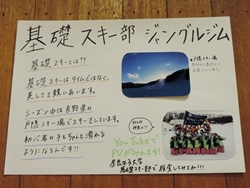 基礎スキー部 ジャングルジム
基礎スキーとは??
基礎スキーはタイムではなく、
美しさを競いあいます。
シーズン中は長野県の
戸隠スキー場でスキーをしています。
初心者の子もちゃんと滑れる
ようになるんです!!
YouTubeで
PVがみれます!
奈良女子大学
基礎スキー部で検索してみてね!!!